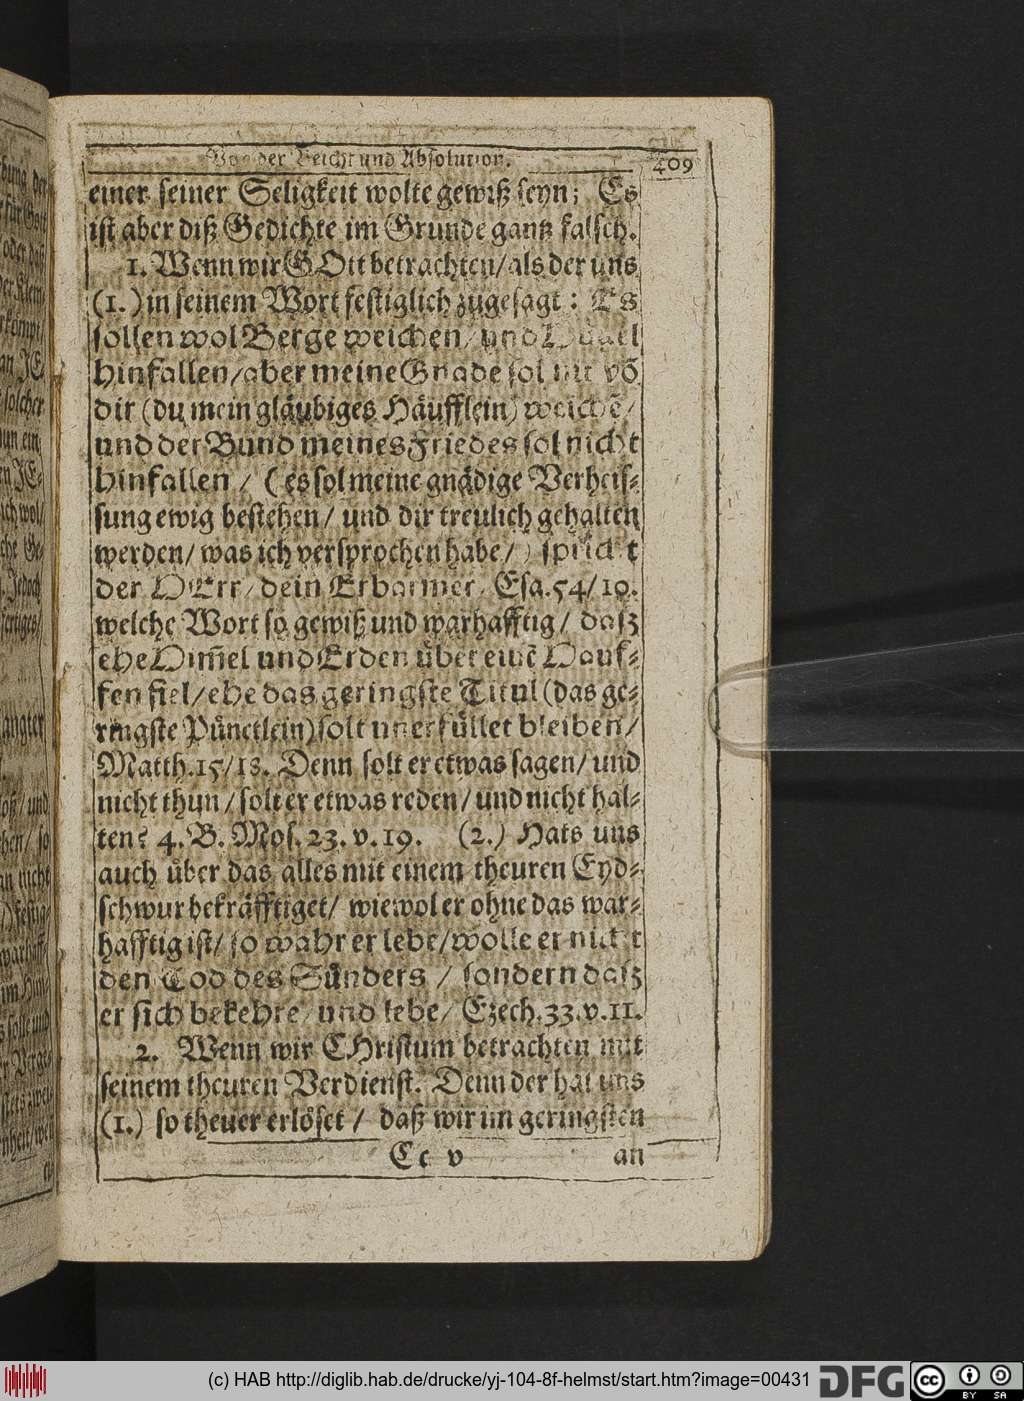 Von der Beicht und Absolution. 409
einer seiner Seligkeit wolte gewiß seyn; Es
ist aber diß Gedichte im Grunde gantz falsch.
1. Wenn wir GOtt betrachten/ als der uns
(1.) in seinem Wort festiglich zugesagt: Es
sollen wol Berge weichen/ und Hügel
hinfallen/ aber meine Gnade sol nit võ
dir (du mein gläubiges Häufflein) weichẽ/
und der Bund meines Friedes sol nicht
hinfallen/ (es sol meine gnädige Verheis-
sung ewig bestehen/ und dir treulich gehalten
werden/ was ich versprochen habe/) spricht
der HErr/ dein Erbarmer/ Esa. 54/10.
welche Wort so gewiß und warhafftig/ dasz
ehe Him̃el und Erden über einẽ Hauf-
fen fiel/ ehe das geringste Titul (das ge-
ringste Pünctlein) solt unerfüllet bleiben/
Matth. 15/18. Denn solt er etwas sagen/ und
nicht thun/ solt er etwas reden/ und nicht hal-
ten? 4. B. Mos. 23. v. 19. (2.) Hats uns
auch über das alles mit einem theuren Eyd-
schwur bekräfftiget/ wiewol er ohne das war-
hafftig ist/ so wahr er lebe/ wolle er nicht
den Tod des Sünders/ sondern dasz
er sich bekehre/ und lebe/ Ezech. 33. v. 11.
2. Wenn wir CHristum betrachten mit
seinem theuren Verdienst. Denn der hat uns
(1.) so theuer erlöset/ daß wir im geringsten
Cc v an
(c) HAB http://diglib.hab.de/drucke/yj-104-8f-helmst/start.htm?image=00431 DFG cc BY SA